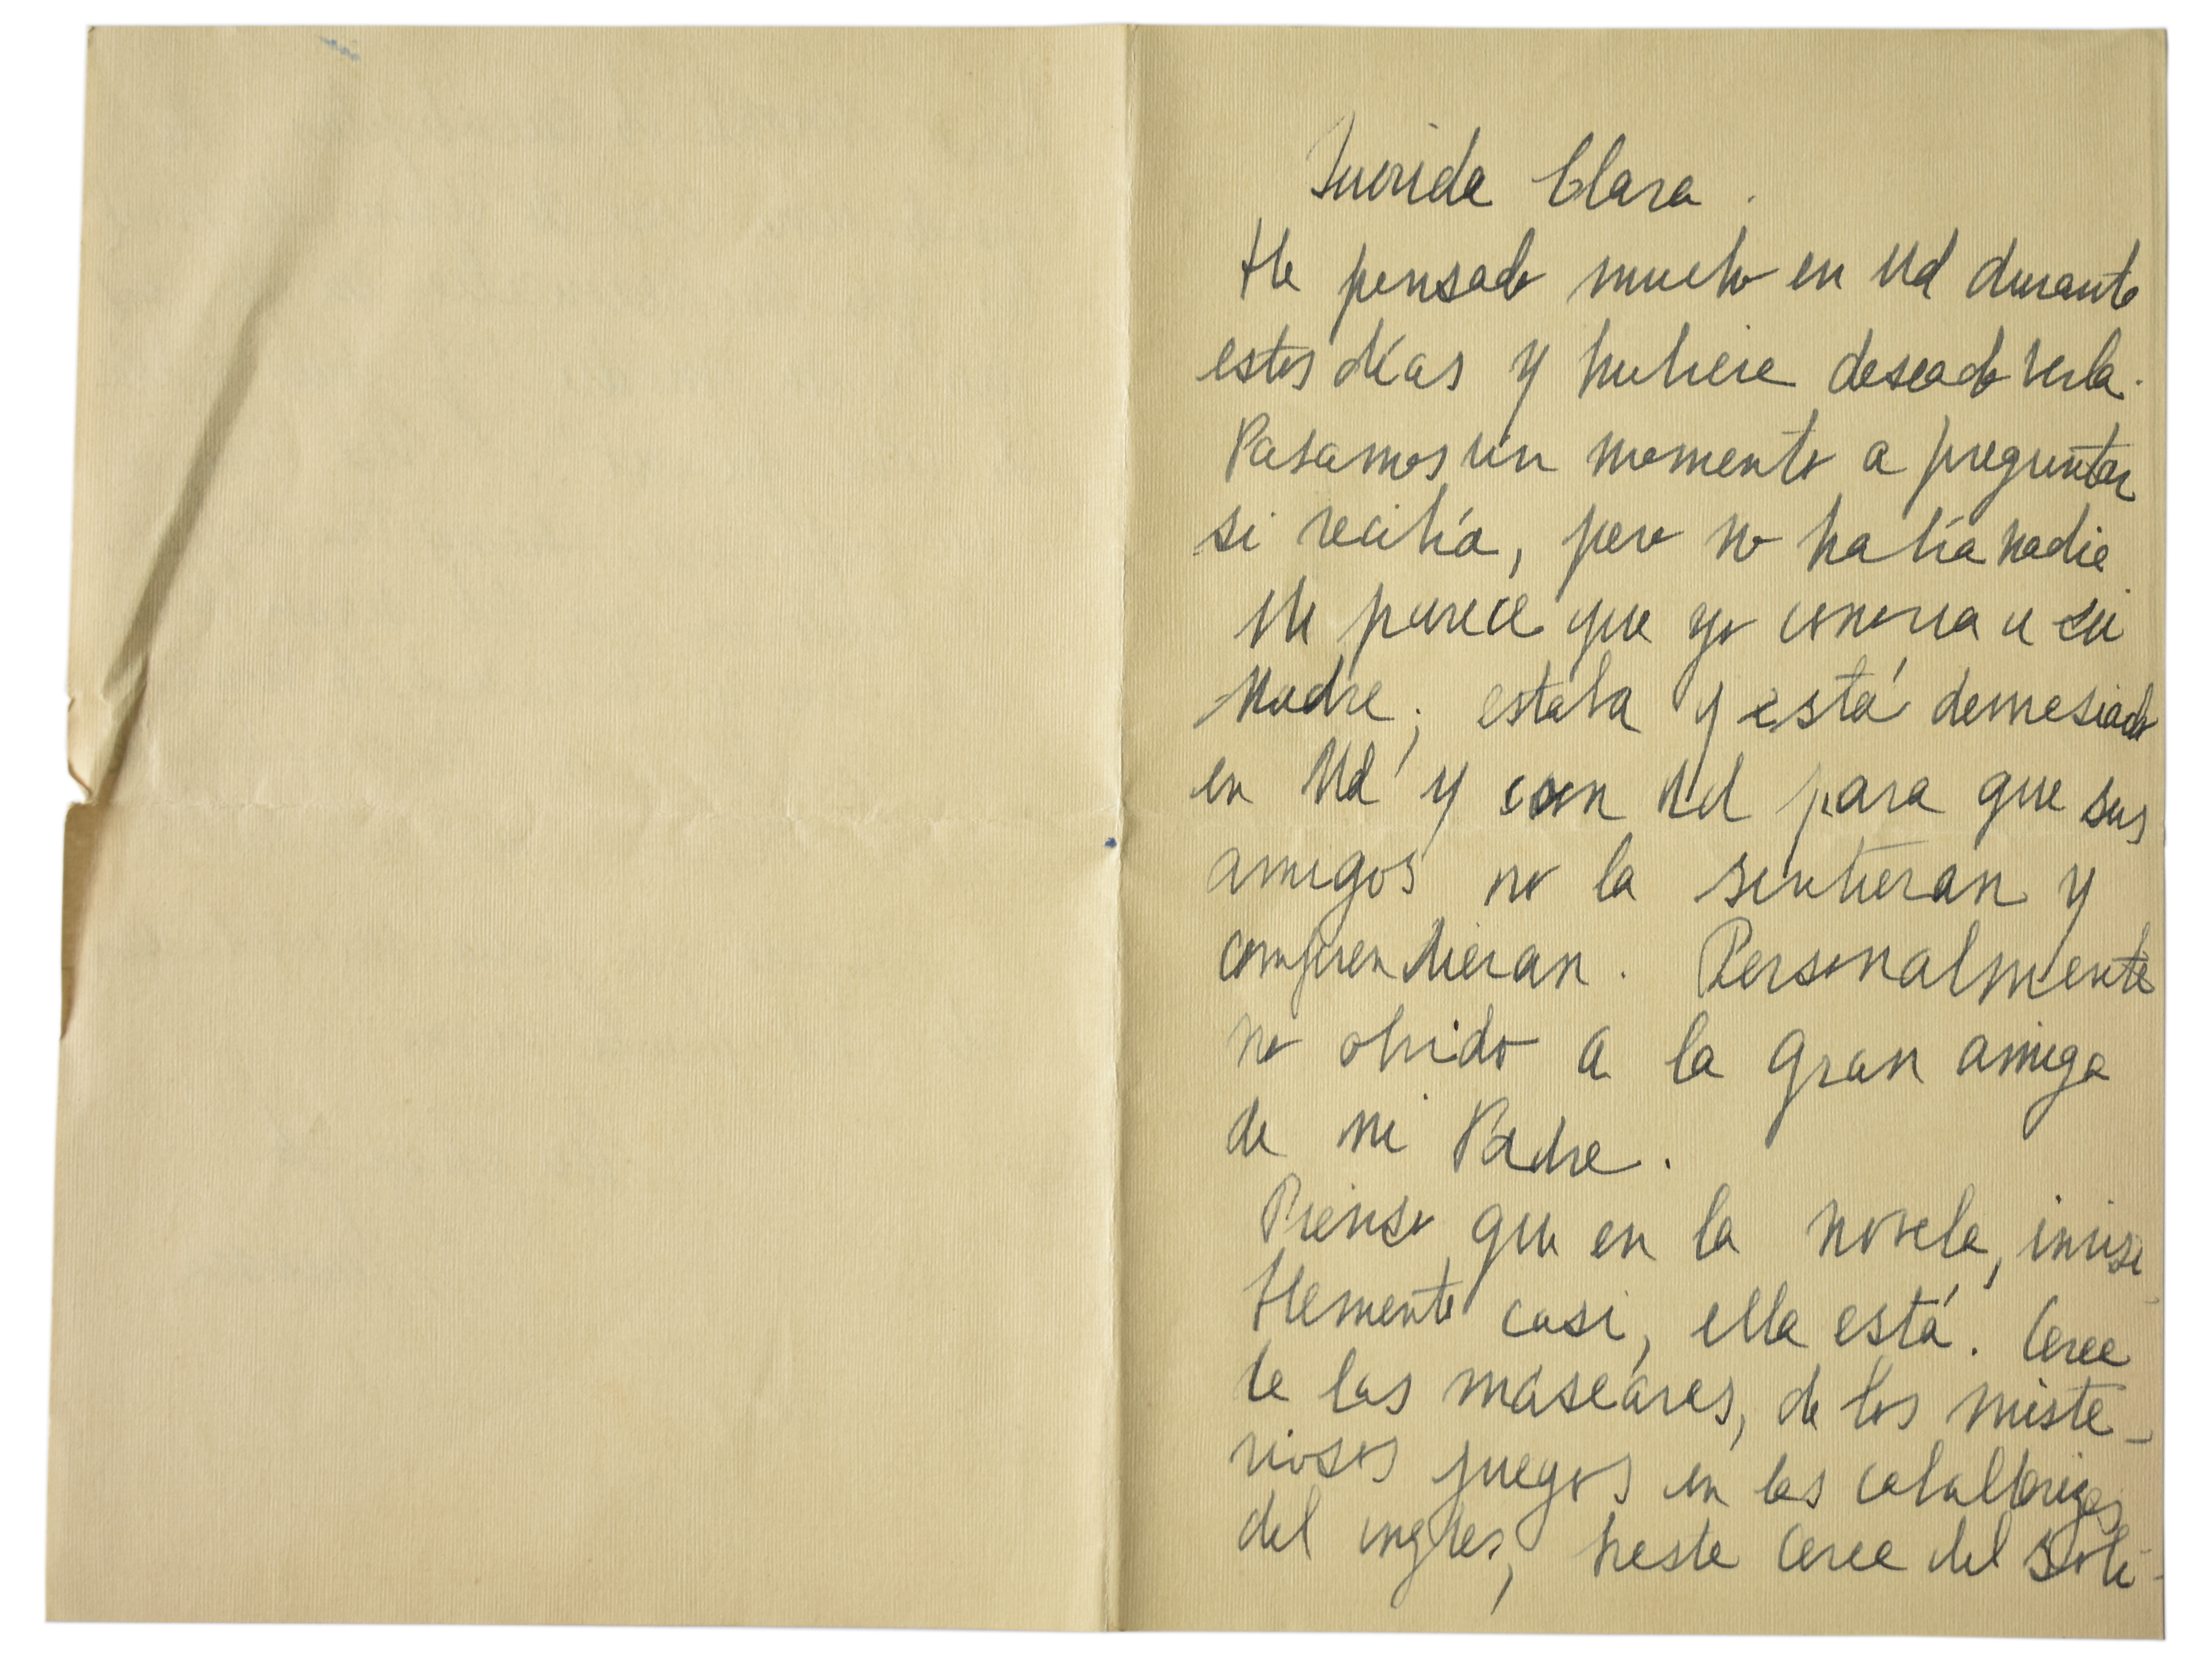 Querida Clara.
He pensado mucho en Ud durante
estos días y hubiese deseado verla.
Pasamos un momento a preguntar
si recibía, pero no había nadie.
Me parece que yo conocía a su
Madre; estaba y está demasiado
en Ud y con Ud para que sus
amigos no la sintieran y
comprendieran. Personalmente
no olvido a la gran amiga
de mi Padre.
Pienso que en la novela, invisi_
blemente casi, ella está. Cerca
de las máscaras, de los miste_
riosos juegos en las caballerizas
del inglés, hasta cerca del soli-